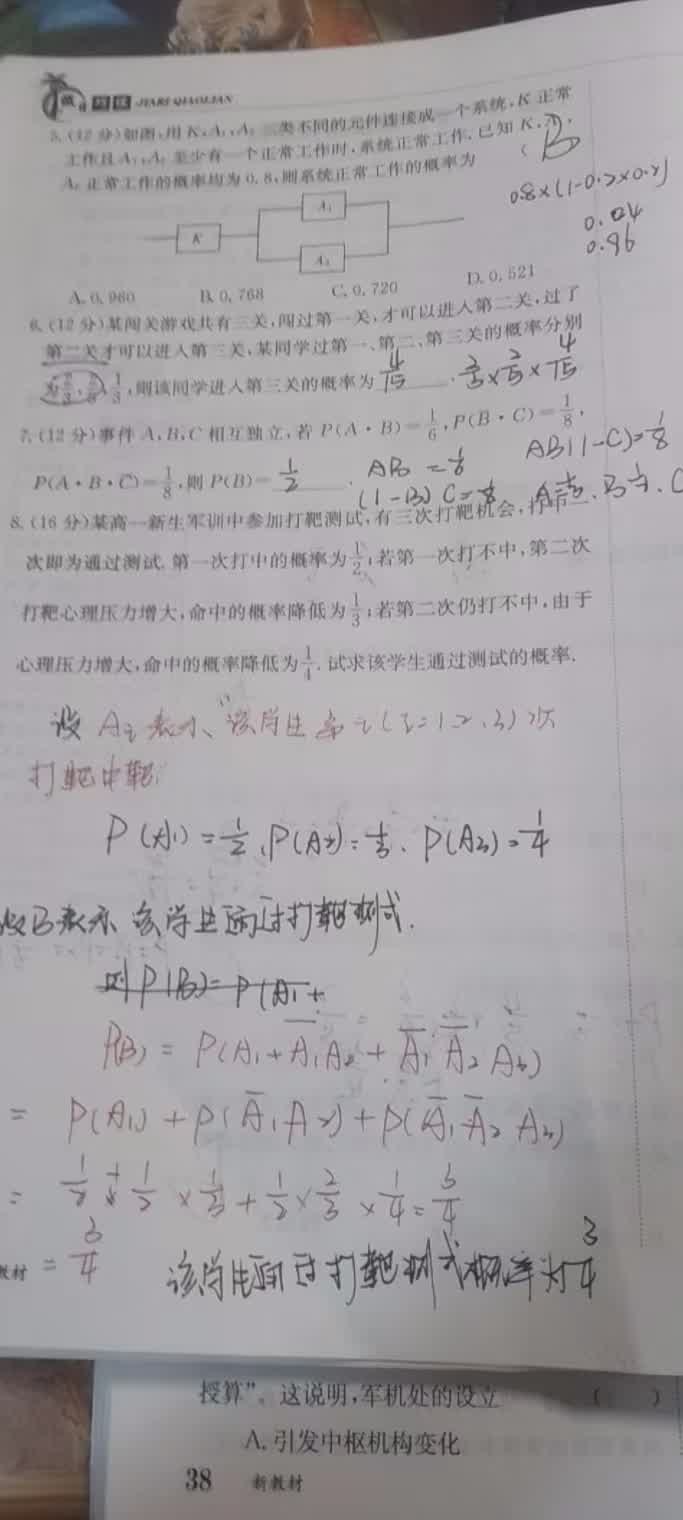 假日巧练 JIARI QIAOLIAN
5.(12分)如图,用K,A₁,A₂三类不同的元件连接成一个系统,K正常
工作且A₁,A₂至少有一个正常工作时,系统正常工作.已知K,A₁,
A₂正常工作的概率均为0.8,则系统正常工作的概率为 ( B )
0.8×(1-0.2×0.2)
0.04
0.96
A₁
K
A₂
A. 0.960 B. 0.768 C. 0.720 D. 0.521
6.(12分)某闯关游戏共有三关,闯过第一关,才可以进入第二关,过了
第二关才可以进入第三关,某同学过第一、第二、第三关的概率分别
为2/3,2/5,1/3,则该同学进入第三关的概率为 4/15 . 2/3×2/5×4/15
7.(12分)事件A,B,C相互独立,若P(A·B)=1/6,P(B̄·C)=1/8,
AB(1-C)=1/8
P(A·B·C̄)=1/8,则P(B)= 1/2 . AB=1/6
(1-B)C=1/8
8.(16分)某高一新生军训中参加打靶测试,有三次打靶机会,打中一
次即为通过测试.第一次打中的概率为1/2;若第一次打不中,第二次
打靶心理压力增大,命中的概率降低为1/3;若第二次仍打不中,由于
心理压力增大,命中的概率降低为1/4.试求该学生通过测试的概率.
设Aᵢ表示"该学生第i(i=1,2,3)次
打靶中靶
P(A₁)=1/2、P(A₂)=1/3、P(A₃)=1/4
设B表示该学生通过打靶测式.
则P(B)=P(A₁+
P(B)=P(A₁+Ā₁A₂+Ā₁Ā₂A₃)
=P(A₁)+P(Ā₁A₂)+P(Ā₁Ā₂A₃)
=1/2+1/2×1/3+1/2×2/3×1/4=3/4
=3/4 该学生通过打靶测式概率为3/4
教材
授算”。这说明,军机处的设立 ( )
A.引发中枢机构变化
38 新教材